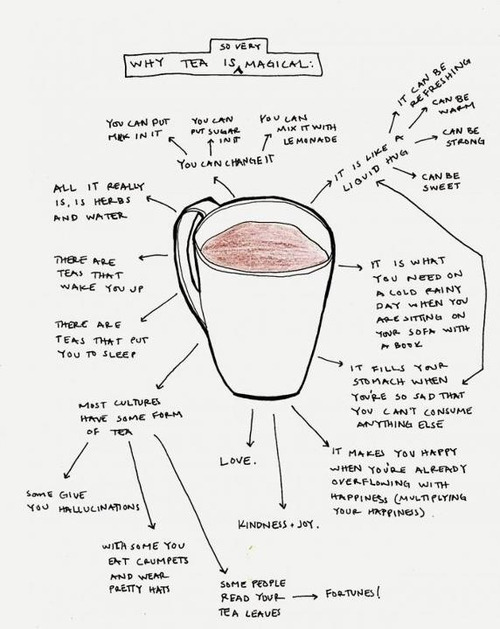 SO VERY
WHY TEA IS MAGICAL:
YOU CAN PUT
MILK IN IT
YOU CAN
PUT SUGAR
IN IT
YOU CAN
MIX IT WITH
LEMONADE
YOU CAN CHANGE IT
IT CAN BE
REFRESHING
CAN BE
WARM
CAN BE
STRONG
CAN BE
SWEET
IT IS LIKE A
LIQUID HUG
ALL IT REALLY
IS, IS HERBS
AND WATER
THERE ARE
TEAS THAT
WAKE YOU UP
THERE ARE
TEAS THAT PUT
YOU TO SLEEP
IT IS WHAT
YOU NEED ON
A COLD RAINY
DAY WHEN YOU
ARE SITTING ON
YOUR SOFA WITH
A BOOK
IT FILLS YOUR
STOMACH WHEN
YOU'RE SO SAD THAT
YOU CAN'T CONSUME
ANYTHING ELSE
MOST CULTURES
HAVE SOME FORM
OF TEA
LOVE.
KINDNESS + JOY.
IT MAKES YOU HAPPY
WHEN YOU'RE ALREADY
OVERFLOWING WITH
HAPPINESS (MULTIPLYING
YOUR HAPPINESS).
SOME GIVE
YOU HALLUCINATIONS
WITH SOME YOU
EAT CRUMPETS
AND WEAR
PRETTY HATS
SOME PEOPLE
READ YOUR
TEA LEAVES
FORTUNES!